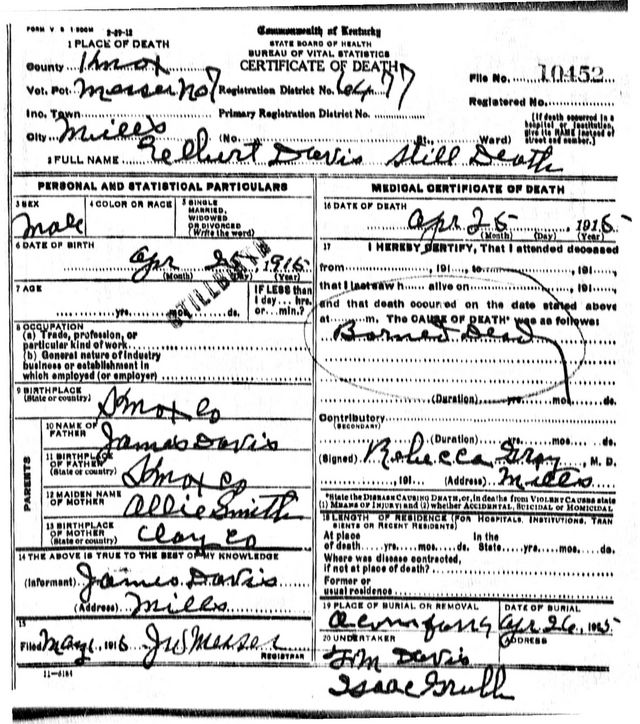 FORM V S 1 500M 2-29-12
Commonwealth of Kentucky
STATE BOARD OF HEALTH
BUREAU OF VITAL STATISTICS
CERTIFICATE OF DEATH
1 PLACE OF DEATH
County Knox
Vot. Pct. Messer No 7 Registration District No. 6477
File No. 10452
Registered No.
Inc. Town Primary Registration District No.
[If death occurred in a hospital or institution, give its NAME instead of street and number.]
City Mills (No. St., Ward)
2 FULL NAME Elbert Davis Still Death
PERSONAL AND STATISTICAL PARTICULARS
3 SEX Male
4 COLOR OR RACE
5 SINGLE MARRIED, WIDOWED OR DIVORCED (Write the word)
6 DATE OF BIRTH
Apr 25, 1915
(Month) (Day) (Year)
STILLBIRTH
7 AGE
yrs. mos. ds.
IF LESS than 1 day... hrs. or... min.?
8 OCCUPATION
(a) Trade, profession, or particular kind of work
(b) General nature of industry business or establishment in which employed (or employer)
9 BIRTHPLACE (State or country) Knox Co
PARENTS
10 NAME OF FATHER James Davis
11 BIRTHPLACE OF FATHER (State or country) Knox Co
12 MAIDEN NAME OF MOTHER Allie Smith
13 BIRTHPLACE OF MOTHER (State or country) Clay Co
14 THE ABOVE IS TRUE TO THE BEST OF MY KNOWLEDGE
(Informant) James Davis
(Address) Mills
15
Filed May 1, 1915 Messer
REGISTRAR
11-5184
MEDICAL CERTIFICATE OF DEATH
16 DATE OF DEATH
Apr 25, 1915
(Month) (Day) (Year)
17 I HEREBY CERTIFY, That I attended deceased
from, 191, to, 191,
that I last saw h alive on, 191,
and that death occurred on the date stated above
at m. The CAUSE OF DEATH* was as follows:
Borned Dead
(Duration) yrs. mos. ds.
Contributory (SECONDARY)
(Duration) yrs. mos. ds.
(Signed) Rebecca Gray, M. D.
, 191 (Address) Mills
*State the DISEASE CAUSING DEATH, or, in deaths from VIOLENT CAUSES state (1) MEANS OF INJURY; and (2) whether ACCIDENTAL, SUICIDAL or HOMICIDAL
18 LENGTH OF RESIDENCE (FOR HOSPITALS, INSTITUTIONS, TRANSIENTS OR RECENT RESIDENTS)
At place of death yrs. mos. ds. In the State yrs. mos. ds.
Where was disease contracted, if not at place of death?
Former or usual residence
19 PLACE OF BURIAL OR REMOVAL
DATE OF BURIAL
Apr 26, 1915
20 UNDERTAKER
ADDRESS
Davis
Isaac